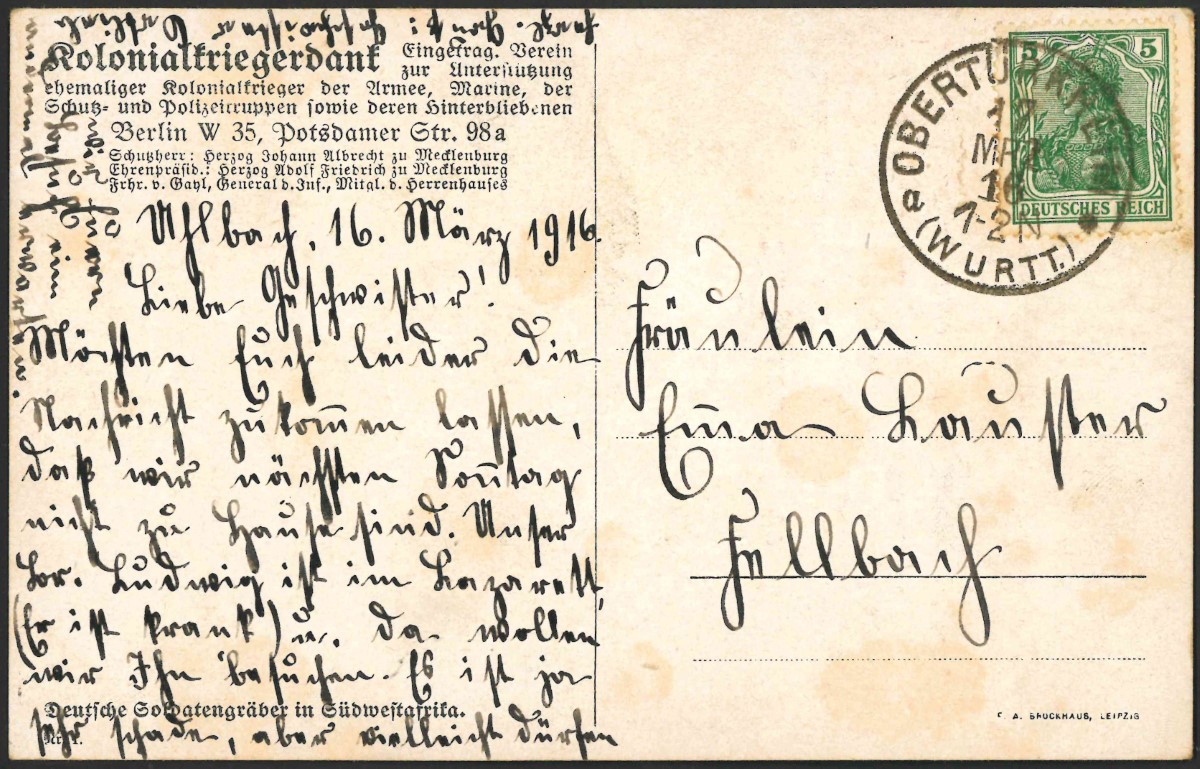 Kolonialkriegerdank Eingetrag. Verein
zur Unterstützung
ehemaliger Kolonialkrieger der Armee, Marine, der
Schutz- und Polizeitruppen sowie deren Hinterbliebenen
Berlin W 35, Potsdamer Str. 98a
Schutzherr: Herzog Johann Albrecht zu Mecklenburg
Ehrenpräsid.: Herzog Adolf Friedrich zu Mecklenburg
Frhr. v. Gayl, General d. Inf., Mitgl. d. Herrenhauses
Uhlbach, 16. März 1916.
Liebe Geschwister!
Möchten Euch leider die
Nachricht zukom̄en lassen,
daß wir nächsten Son̄tag
nicht zu Hause sind. Unser
Br. Ludwig ist im Lazarett,
(Er ist krank) u. da wollen
wir Ihn besuchen. Es ist ja
sehr schade, aber vielleicht dürfen
wir Euern
Besuch ein
andermal erwarten.
Geschwister
Deutsche Soldatengräber in Südwestafrika.
Nr. 1.
5 5
DEUTSCHES REICH
OBERTÜRKHEIM
17
MRZ
16
1-2 N
a
(WÜRTT.)
Fräulein
Em̄a Lauster
Fellbach
F. A. BROCKHAUS, LEIPZIG